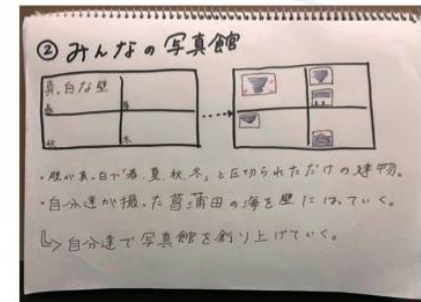 ② みんなの写真館
真っ白な壁
春
夏
秋
冬
・壁が真っ白で「春、夏、秋、冬」と区切られただけの建物。
・自分達が撮った菖蒲田の海を壁にはっていく。
↳ 自分達で写真館を創り上げていく。